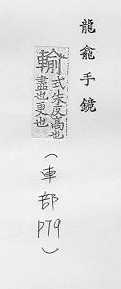 龍龕手鏡
輸式朱反髙也
盡也更也
（車部
p79）